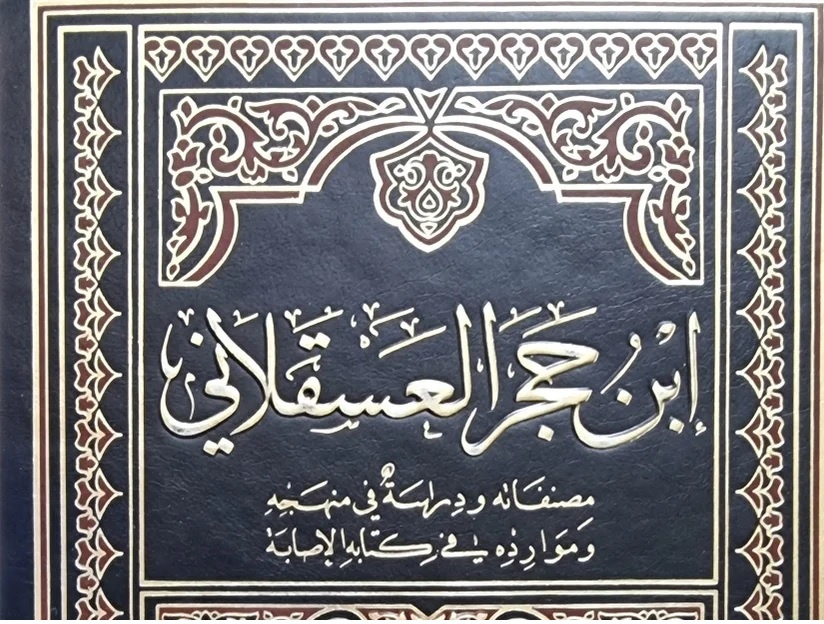 إبن حجر العسقلاني
مصنفاته ودراسة في منهجه
وموارده في كتابه الإصابة